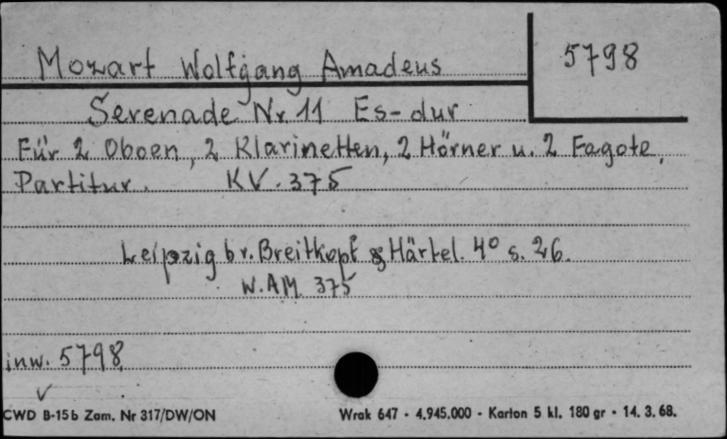 Mozart Wolfgang Amadeus
5798
Serenade Nr 11 Es-dur
Für 2 Oboen, 2 Klarinetten, 2 Hörner u. 2 Fagote,
Partitur. KV. 375
Leipzig br. Breitkopf & Härtel. 4° s. 26.
W.A.M. 375
inw. 5798
CWD B-15b Zam. Nr 317/DW/ON
Wrak 647 - 4.945.000 - Karton 5 kl. 180 gr - 14. 3. 68.